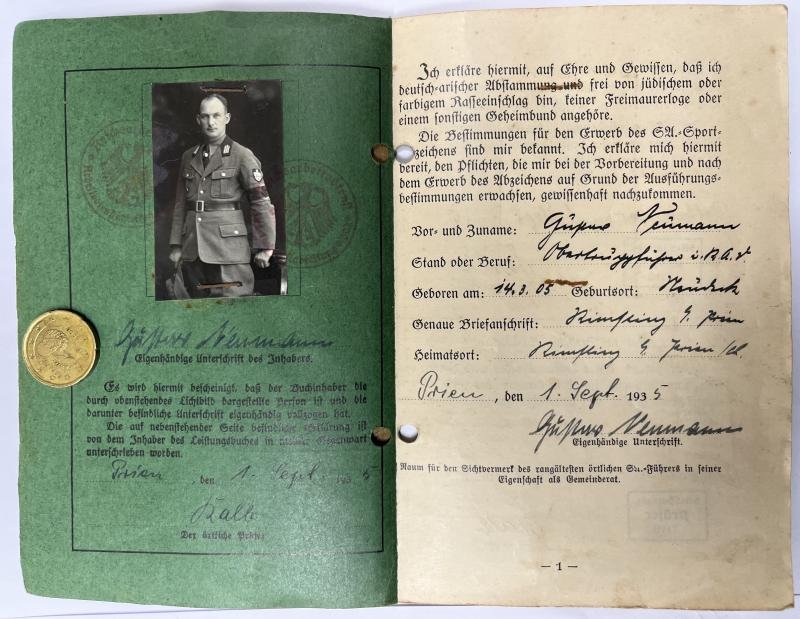 Gustav Neumann
Eigenhändige Unterschrift des Inhabers.
Es wird hiermit bescheinigt, daß der Buchinhaber die
durch obenstehendes Lichtbild dargestellte Person ist und die
darunter befindliche Unterschrift eigenhändig vollzogen hat.
Die auf nebenstehender Seite befindliche Erklärung ist
von dem Inhaber des Leistungsbuches in meiner Gegenwart
unterschrieben worden.
Prien, den 1. Sept. 1935
Kalb
Der örtliche Prüfer
Ich erkläre hiermit, auf Ehre und Gewissen, daß ich
deutsch-arischer Abstammung und frei von jüdischem oder
farbigem Rasseeinschlag bin, keiner Freimaurerloge oder
einem sonstigen Geheimbund angehöre.
Die Bestimmungen für den Erwerb des SA.-Sport-
abzeichens sind mir bekannt. Ich erkläre mich hiermit
bereit, den Pflichten, die mir bei der Vorbereitung und nach
dem Erwerb des Abzeichens auf Grund der Ausführungs-
bestimmungen erwachsen, gewissenhaft nachzukommen.
Vor- und Zuname: Gustav Neumann
Stand oder Beruf: Obertruppführer i. R.A.D.
Geboren am: 14.3.05 Geburtsort: Neudeck
Genaue Briefanschrift: b. Prien
Heimatsort: b. Prien
Prien, den 1. Sept. 1935
Gustav Neumann
Eigenhändige Unterschrift.
Raum für den Sichtvermerk des rangältesten örtlichen SA.-Führers in seiner
Eigenschaft als Gemeinderat.
— 1 —